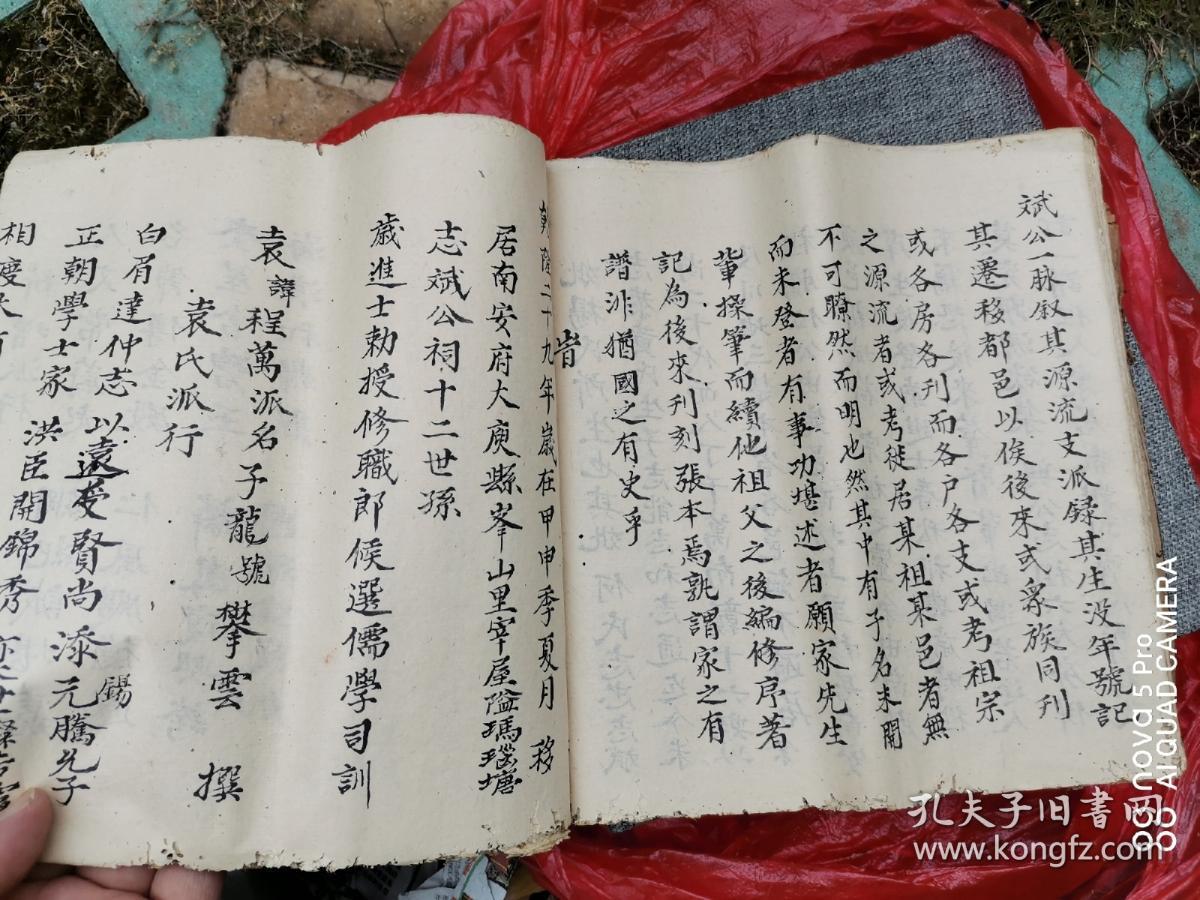 斌公一脉叙其源流支派録其生没年號記
其遷移都邑以俟後來或衆族同刊
或各房各刊而各户各支或考祖宗
之源流者或考徙居某祖某邑者無
不可瞭然而明也然其中有子名未開
而未登者有事功堪述者願家先生
輩操筆而續他祖父之後編修序著
記為後來刊刻張本焉孰謂家之有
譜非猶國之有史乎
旹
乾隆二十九年歲在甲申季夏月 移
居南安府大庾縣峯山里宰屋隘瑪瑙塘
志斌公祠十二世孫
歲進士勅授修職郎候選儒學司訓
袁諱程萬派名子龍號攀雲 撰
袁氏派行
白眉達仲志 以遠受賢尚 添元騰允子
錫
正朝學士家 洪臣開錦秀
相慶
孔夫子旧书网
www.kongfz.com
nova 5 Pro
AI QUAD CAMERA